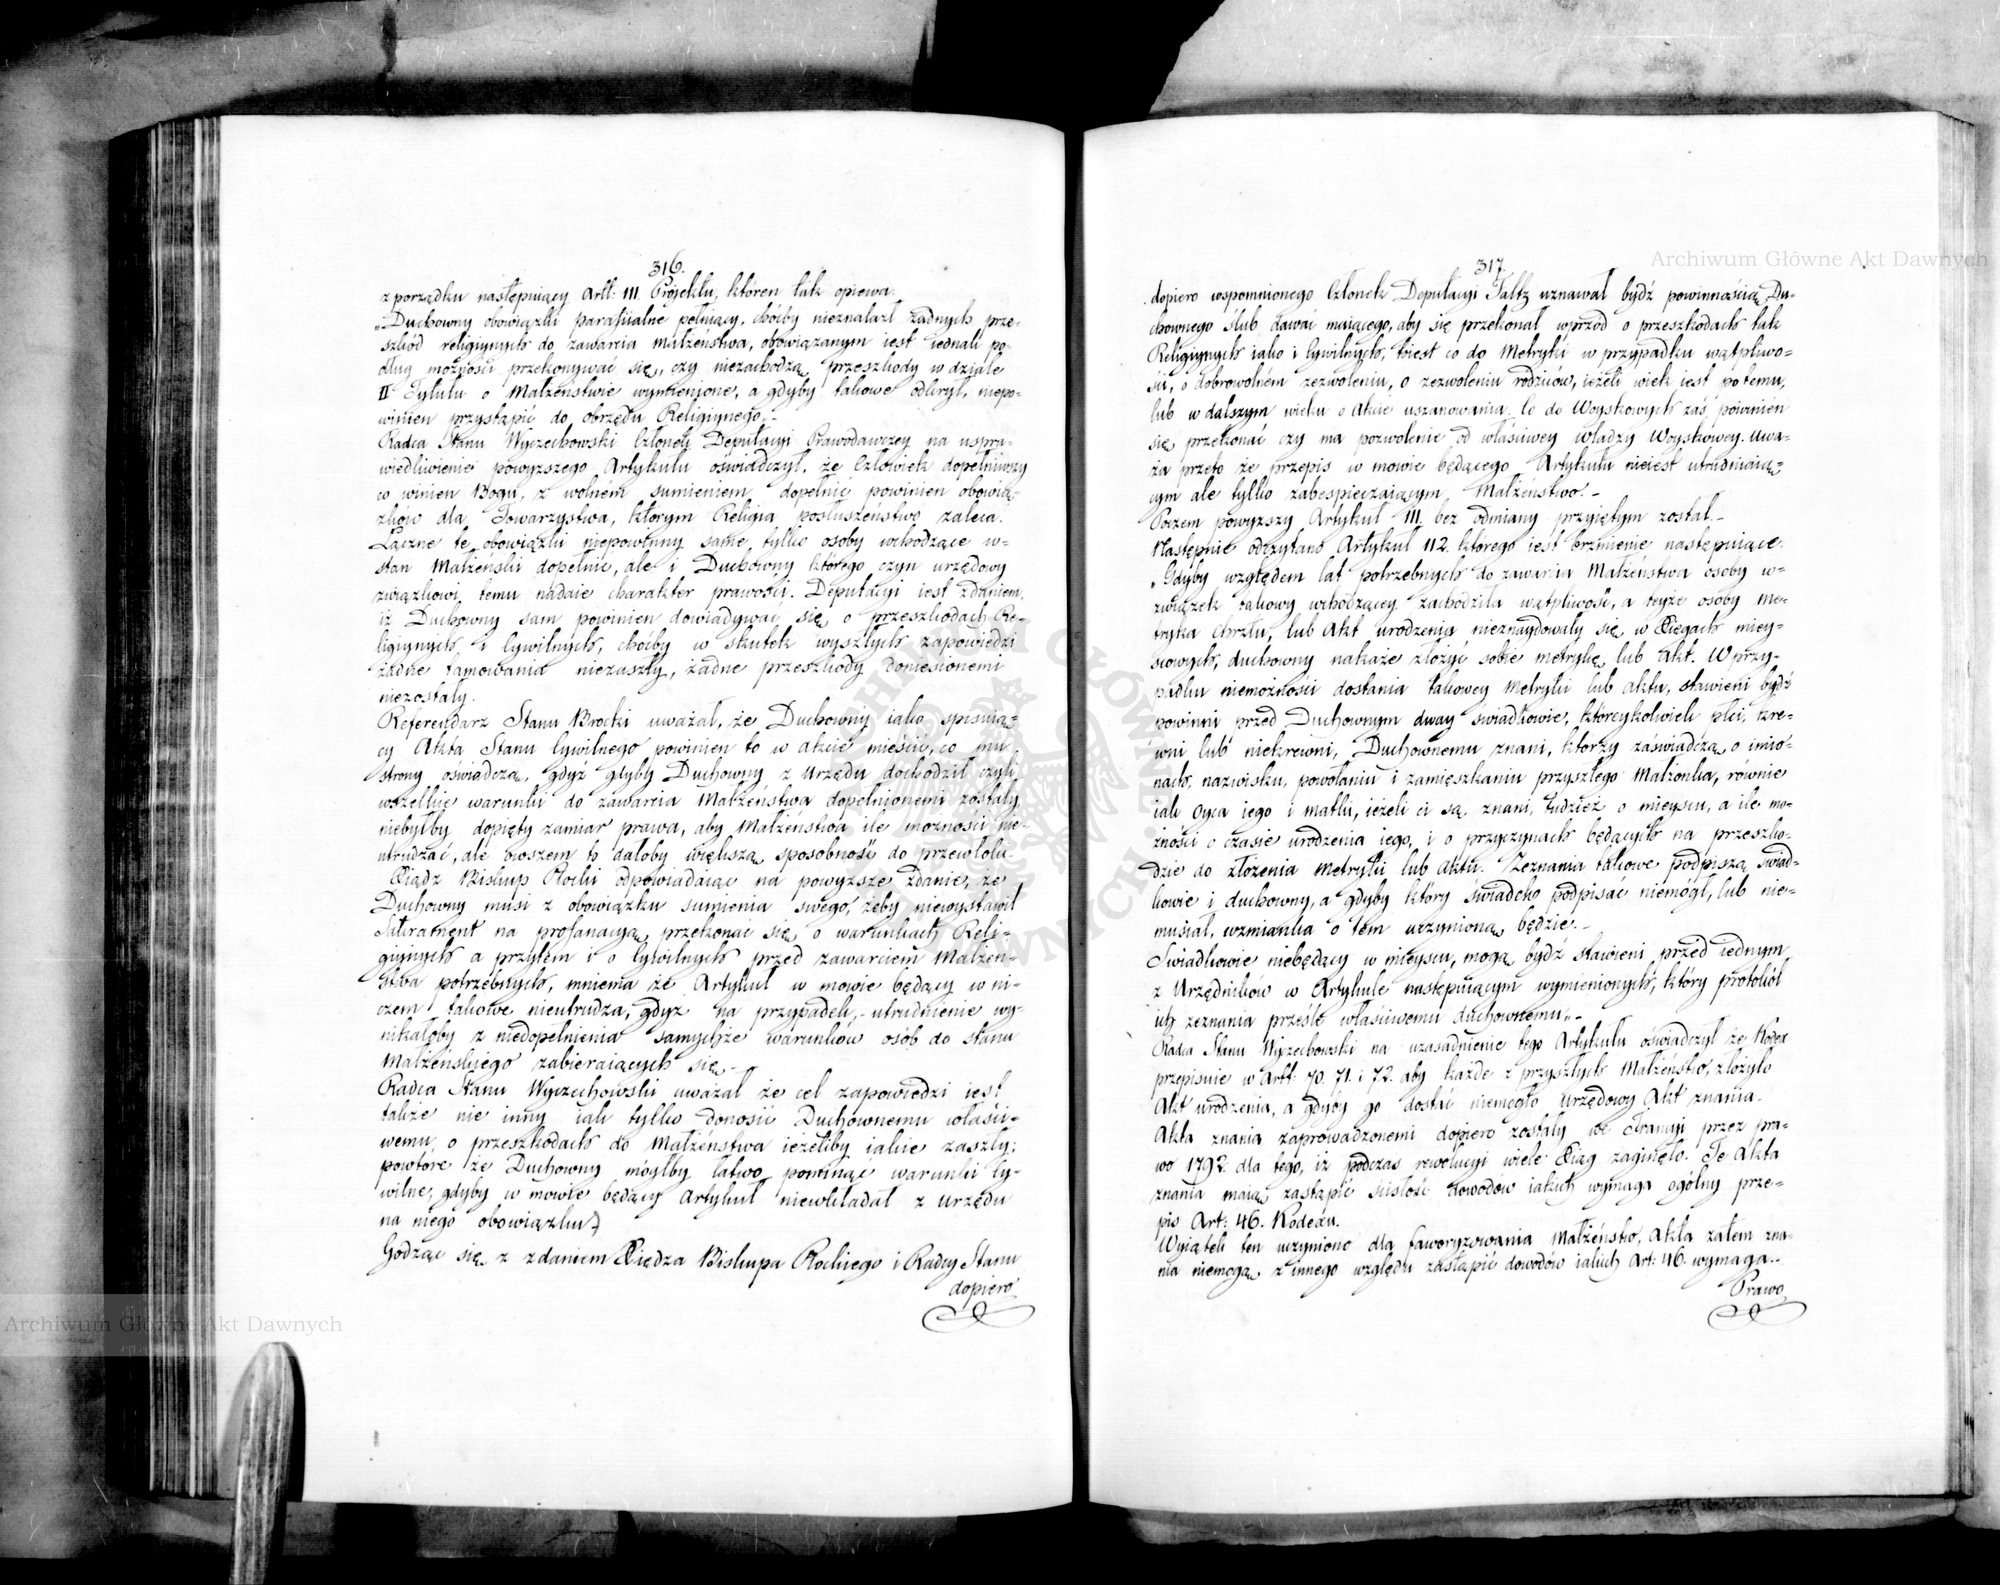 316.
z porządku następuiący Artt: 111. Projektu, któren tak opiewa.
„Duchowny obowiązki parafiialne pełniący, chóćby nieznalazł żadnych prze-
szkód religiynych do zawarcia małżeństwa, obowiązanym iest iednak po-
dług możności przekonywać się, czy niezachodzą przeszkody w dziale
II Tytułu o Małżeństwie wymienione, a gdyby takowe odkrył, niepo-
winien przystąpić do obrzędu Religiynego.„-
Radca Stanu Wyczechowski Członek Deputacyi Prawodawczey na uspra-
wiedliwienie powyższego Artykułu oświadczył, że Człowiek dopełniwszy
co winien Bogu, z wolném sumieniem dopełnić powinien obowią-
zków dla Towarzystwa, którym Religia posłuszeństwo zaleca.
Łączne te obowiązki niepowinny same tylko osoby wchodzące w-
stan Małżeński dopełnić, ale i Duchowny którego czyn urzędowy
związkowi temu nadaie charakter prawości. Deputacyi iest zdaniem,
iż Duchowny sam powinien dowiadywać się o przeszkodach Re-
ligiynych i Cywilnych, chóćby w skutek wyszłych zapowiedzi
żadne tamowania niezaszły, żadne przeszkody doniesionemi
niezostały.
Referendarz Stanu Brocki uważał, że Duchowny iako spisuią-
cy Akta Stanu Cywilnego powinien to w akcie mieścić, co mu
strony oświadczą, gdyż gdyby Duchowny z Urzędu dochodził czyli
wszelkie warunki do zawarcia Małżeństwa dopełnionemi zostały
niebyłby dopięty zamiar prawa, aby Małżeństwa ile możności nie-
utrudzać, ale owszem to dałoby większą sposobność do przewłoki.
Xiądz Biskup Płocki odpowiadaiąc na powyższe zdanie, że
Duchowny musi z obowiązku sumienia swego, żeby niewystawił
Sakrament na profanacyą, przekonać się o warunkach Reli-
giynych a przytém i o Cywilnych przed zawarciem Małżeń-
stwa potrzebnych, mniema że Artykuł w mowie będący w ni-
czem takowe nieutrudza, gdyż na przypadek, utrudnienie wy-
nikałoby z niedopełnienia samychże warunków osób do stanu
Małżeńskiego zabieraiących się.-
Radca Stanu Wyczechowski uważał że cel zapowiedzi iest
także nie inny iak tylko donosić Duchownemu właści-
wemu o przeszkodach do Małżeństwa ieżeliby iakie zaszły;
powtóre że Duchowny mógłby łatwo pominąć warunki Cy-
wilne, gdyby w mowie będący Artykuł niewkładał z urzędu
na niego obowiązku.
Godząc się z zdaniem Xiędza Biskupa Płockiego i Radcy Stanu
dopiero
317.
dopiero wspomnionego Członek Deputacyi Faltz uznawał bydź powinnością Du-
chownego ślub dawać maiącego, aby się przekonał wprzód o przeszkodach tak
Religiynych iako i Cywilnych, toiest co do Metryki w przypadku wątpliwo-
ści, o dobrowolném zezwoleniu, o zezwoleniu rodziców, ieżeli wiek iest po temu,
lub w dalszym wieku o akcie uszanowania. Co do Woyskowych zaś powinien
się przekonać czy ma pozwolenie od właściwey władzy Woyskowey. uwa-
ża przeto że przepis w mowie będącego Artykułu nieiest utrudniaią-
cym ale tylko zabespieczaiącym Małżeństwo.-
Poczem powyższy Artykuł 111. bez odmiany przyiętym został.-
Następnie odczytano Artykuł 112. którego iest brzmienie następuiące.
„Gdyby względem lat potrzebnych do zawarcia Małżeństwa osoby w-
związek takowy wchodzącey zachodziła wątpliwość, a teyże osoby me-
tryka chrztu, lub Akt urodzenia nieznaydowały się w Xięgach miey-
scowych, duchowny nakaże złożyć sobie metrykę lub akt. W przy-
padku niemożności dostania takowey metryki lub aktu, stawieni bydź
powinni przed Duchownym dway świadkowie, któreykolwiek płci, kre-
wni lub niekrewni, Duchownemu znani, którzy zaświadczą o imio-
nach, nazwisku, powołaniu i zamięszkaniu przyszłego Małżonka, równie
iak oyca iego i matki, ieżeli ci są znani, tudzież o mieyscu, a ile mo-
żności o czasie urodzenia iego, i o przyczynach będących na przeszko-
dzie do złożenia metryki lub aktu. Zeznania takowe podpiszą świad-
kowie i duchowny, a gdyby który świadek podpisać niemógł, lub nie-
musiał, wzmianka o tém uczynioną będzie.-
Świadkowie niebędący w mieyscu, mogą bydź stawieni przed iednym
z Urzędników w Artykule następuiącym wymienionych, który protokół
ich zeznania prześle właściwemu duchownemu.„-
Radca Stanu Wyczechowski na uzasadnienie tego Artykułu oświadczył że Kodex
przepisuie w Artt: 70. 71. i 72. aby każde z przyszłych Małżeństw, złożyło
Akt urodzenia, a gdyby go dostać niemogło urzędowy Akt znania.
Akta znania zaprowadzonemi dopiero zostały we Francyi przez pra-
wo 1792. dla tego, iż podczas rewolucyi wiele Xiąg zaginęło. Te Akta
znania maią zastąpić ścisłość dowodów iakich wymaga ogólny prze-
pis Art: 46. Kodexu.
Wyiątek ten uczyniono dla faworyzowania Małżeństw, Akta zatem zna-
nia niemogą z innego względu zastąpić dowodów iakich Art: 46. wymaga.-
Prawo
Archiwum Główne Akt Dawnych
Archiwum Główne Akt Dawnych